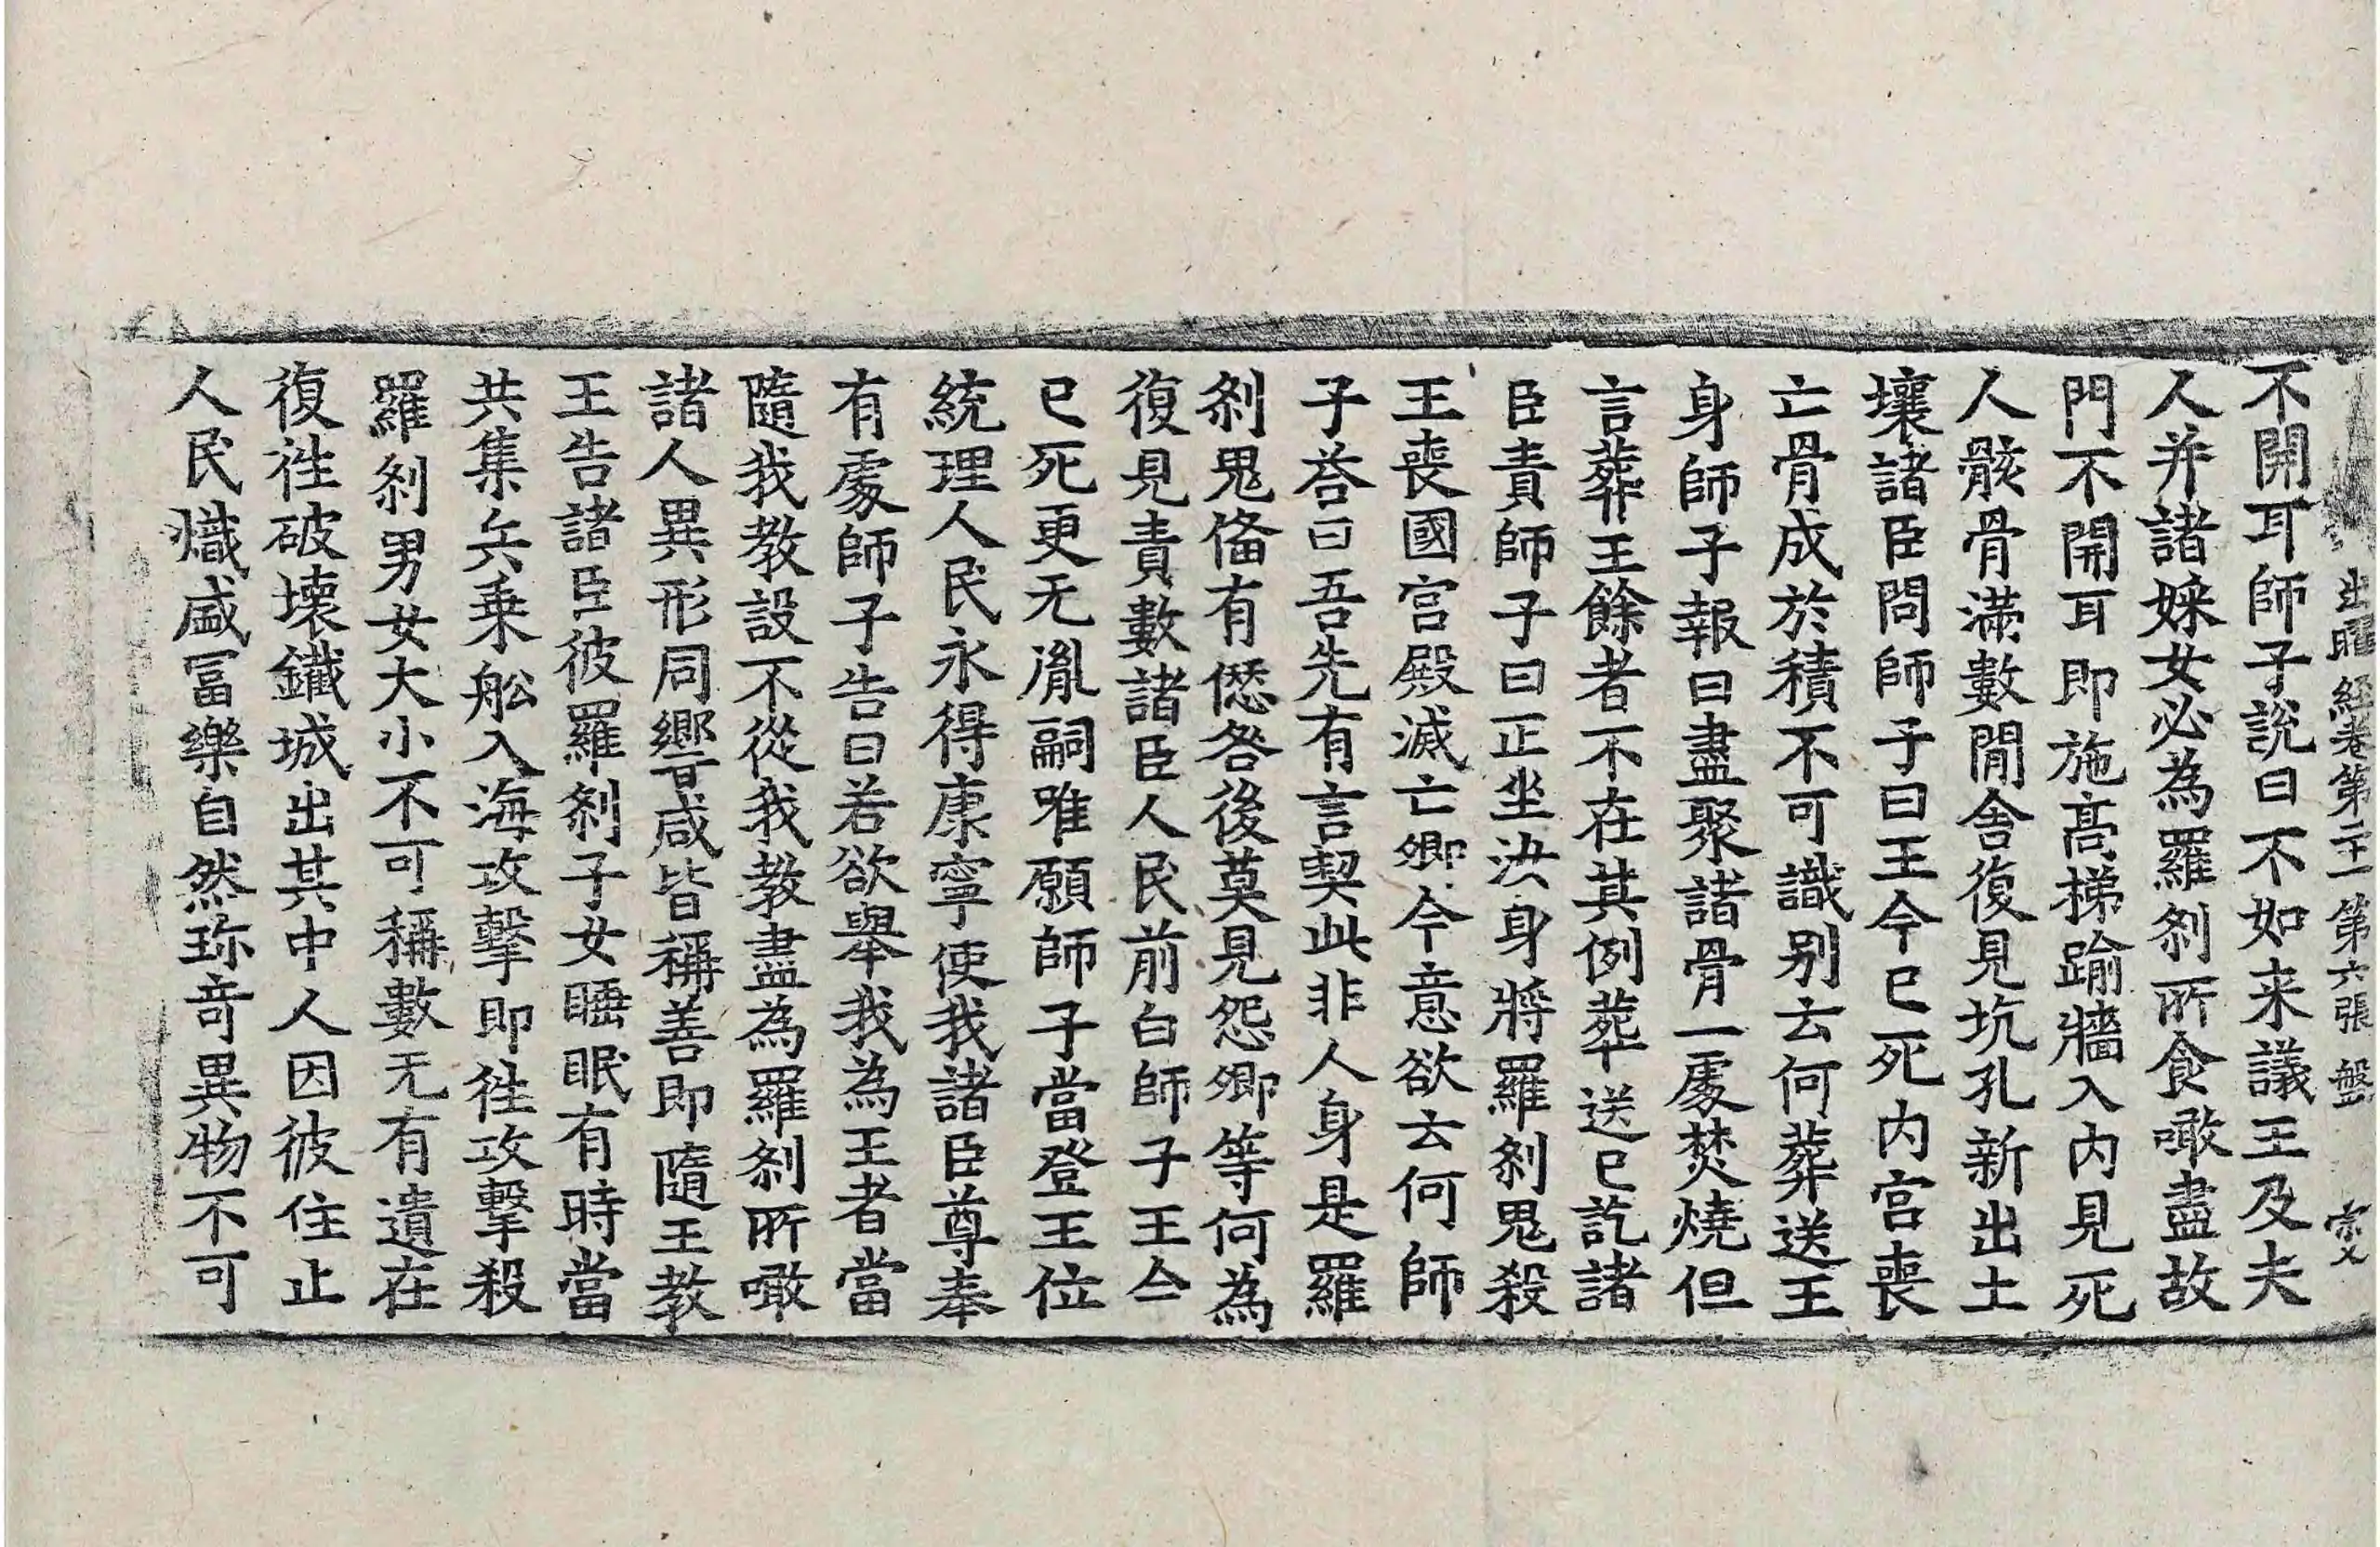 出曜経卷第二十一第六張 盤 㝎
不開耳師子說曰不如来議王及夫
人并諸婇女必為羅刹所食噉盡故
門不開耳即施髙梯踰牆入內見死
人骸骨滿數閒舍復見坑孔新出土
壤諸臣問師子曰王今已死內宮喪
亡骨成於積不可識別云何葬送王
身師子報曰盡聚諸骨一處焚燒但
言葬王餘者不在其例葬送已訖諸
臣責師子曰正坐汝身將羅刹鬼殺
王喪國宮殿滅亡卿今意欲云何師
子荅曰吾先有言契此非人身是羅
刹鬼俻有愆咎後莫見怨卿等何為
復見責數諸臣人民前白師子王今
已死更无胤嗣唯願師子當登王位
統理人民永得康寧使我諸臣尊奉
有處師子告曰若欲舉我為王者當
隨我教設不從我教盡為羅刹所噉
諸人異形同響咸皆稱善即隨王教
王告諸臣彼羅刹子女睡眠有時當
共集兵乗舩入海攻擊即徃攻擊殺
羅刹男女大小不可稱數无有遺在
復徃破壞鐵城出其中人因彼住止
人民熾盛冨樂自然珎竒異物不可